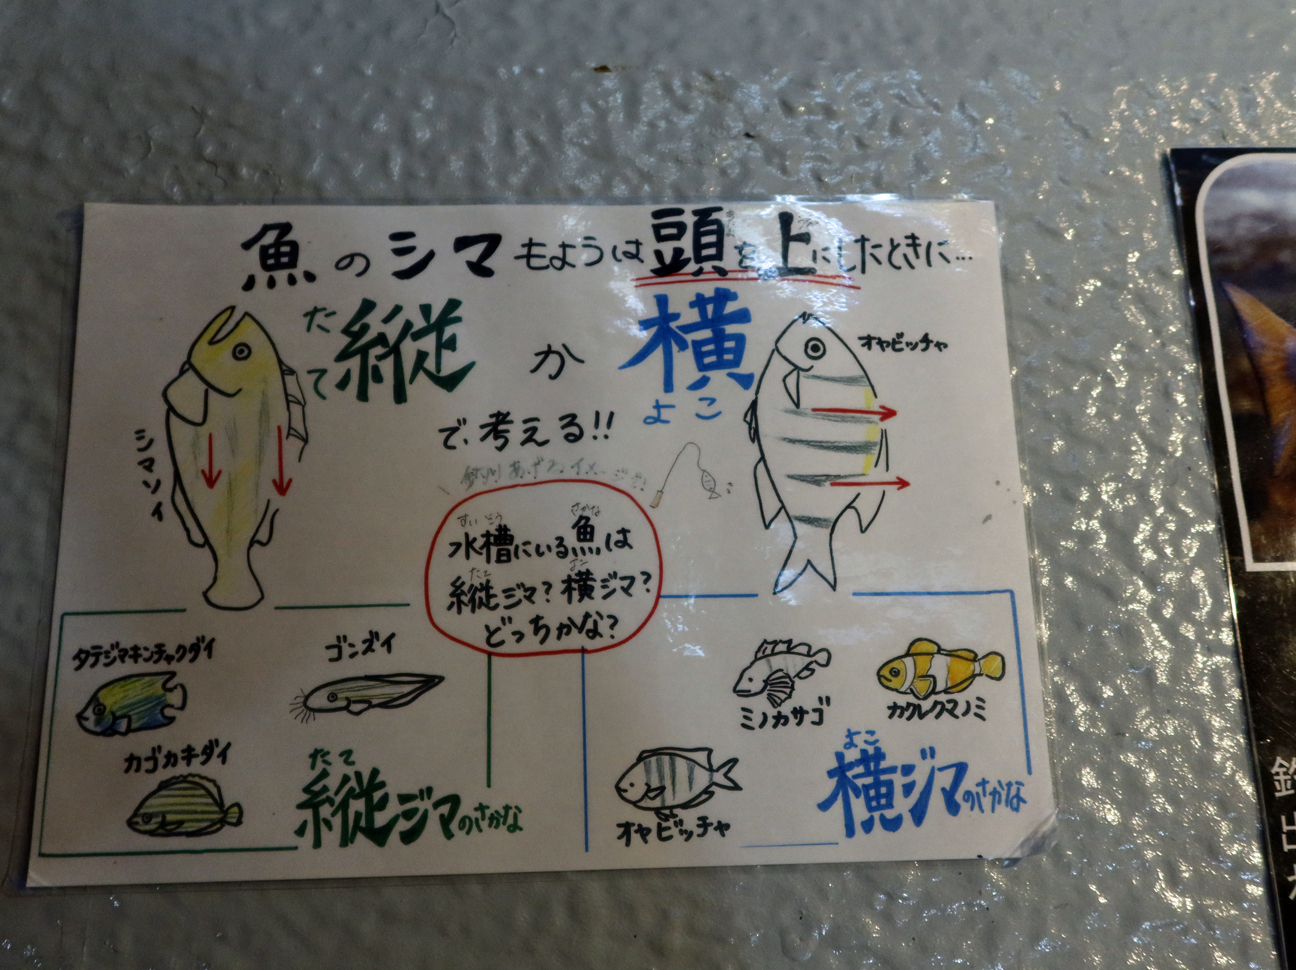 魚のシマもようは頭を上にしたときに…
たて
縦か横
よこ
オヤビッチャ
で考える!!
シマソイ
釣りあげるイメージ!!
すいそう さかな
水槽にいる魚は
たて よこ
縦ジマ?横ジマ?
どっちかな?
タテジマキンチャクダイ
ゴンズイ
カゴカキダイ
たて
縦ジマのさかな
ミノカサゴ
カクレクマノミ
オヤビッチャ
よこ
横ジマのさかな
出